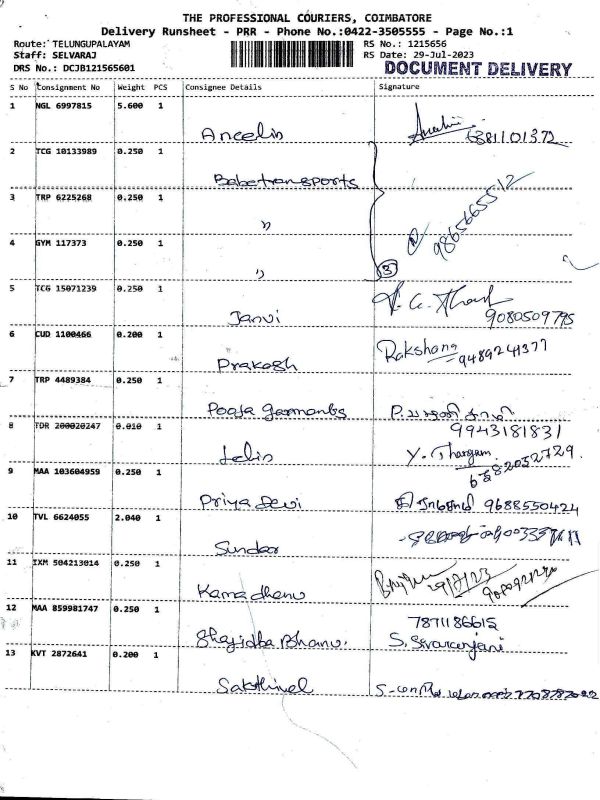 THE PROFESSIONAL COURIERS, COIMBATORE
Delivery Runsheet - PRR - Phone No.:0422-3505555 - Page No.:1
Route: TELUNGUPALAYAM RS No.: 1215656
Staff: SELVARAJ RS Date: 29-Jul-2023
DRS No.: DCJB121565601 DOCUMENT DELIVERY
S No Consignment No Weight PCS Consignee Details Signature
1 NGL 6997815 5.600 1
Ancelin 6381101372
2 TCG 10133989 0.250 1
Babatransports
3 TRP 6225268 0.250 1
" 9865665512
4 GYM 117373 0.250 1
" 3
5 TCG 15071239 0.250 1
Janvi 9080509795
6 CUD 1100466 0.200 1
Prakash Rakshana 9489241377
7 TRP 4489384 0.250 1
Pooja garmants
9943181831
8 TDR 200020247 0.010 1
Lelin Y. Thangam
9 MAA 103604959 0.250 1
Priya Devi 9688550424
10 TVL 6624055 2.040 1
Sundar
11 IXM 504213014 0.250 1
Kamadhenu 29/7/23
12 MAA 859981747 0.250 1 7871186615
Shajidha Bhanu. S. Sivaranjani
13 KVT 2872641 0.200 1
Sakthivel 7708787022